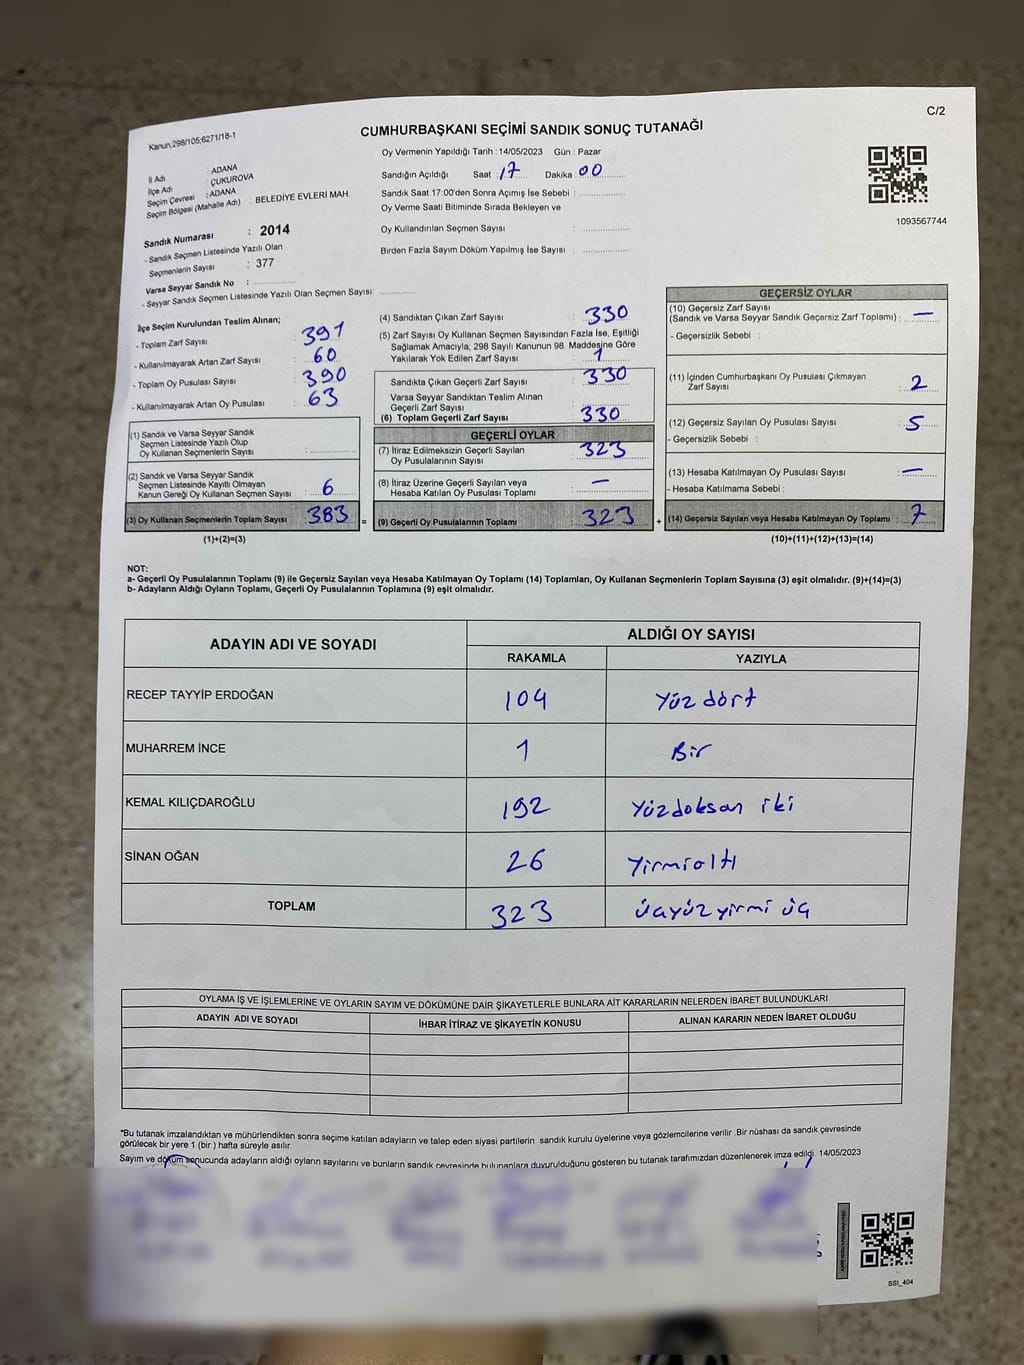 C/2
Kanun;298/105;6271/16-1
CUMHURBAŞKANI SEÇİMİ SANDIK SONUÇ TUTANAĞI
İl Adı : ADANA
İlçe Adı : ÇUKUROVA
Seçim Çevresi : ADANA
Seçim Bölgesi (Mahalle Adı) : BELEDİYE EVLERİ MAH.
Sandık Numarası : 2014
- Sandık Seçmen Listesinde Yazılı Olan
Seçmenlerin Sayısı : 377
Varsa Seyyar Sandık No :
- Seyyar Sandık Seçmen Listesinde Yazılı Olan Seçmen Sayısı:
Oy Vermenin Yapıldığı Tarih :14/05/2023 Gün : Pazar
Sandığın Açıldığı Saat 17 Dakika 00
Sandık Saat 17:00'den Sonra Açımış İse Sebebi :
Oy Verme Saati Bitiminde Sırada Bekleyen ve
Oy Kullandırılan Seçmen Sayısı :
Birden Fazla Sayım Döküm Yapılmış İse Sayısı :
1093567744
İlçe Seçim Kurulundan Teslim Alınan;
- Toplam Zarf Sayısı : 391
- Kullanılmayarak Artan Zarf Sayısı : 60
- Toplam Oy Pusulası Sayısı : 390
- Kullanılmayarak Artan Oy Pusulası : 63
(1) Sandık ve Varsa Seyyar Sandık
Seçmen Listesinde Yazılı Olup
Oy Kullanan Seçmenlerin Sayısı :
(2) Sandık ve Varsa Seyyar Sandık
Seçmen Listesinde Kayıtlı Olmayan
Kanun Gereği Oy Kullanan Seçmen Sayısı : 6
(3) Oy Kullanan Seçmenlerin Toplam Sayısı : 383 =
(1)+(2)=(3)
(4) Sandıktan Çıkan Zarf Sayısı : 330
(5) Zarf Sayısı Oy Kullanan Seçmen Sayısından Fazla İse, Eşitliği
Sağlamak Amacıyla, 298 Sayılı Kanunun 98. Maddesine Göre
Yakılarak Yok Edilen Zarf Sayısı : 1
Sandıkta Çıkan Geçerli Zarf Sayısı : 330
Varsa Seyyar Sandıktan Teslim Alınan
Geçerli Zarf Sayısı :
(6) Toplam Geçerli Zarf Sayısı : 330
GEÇERLİ OYLAR
(7) İtiraz Edilmeksizin Geçerli Sayılan
Oy Pusulalarının Sayısı : 323
(8) İtiraz Üzerine Geçerli Sayılan veya
Hesaba Katılan Oy Pusulası Toplamı : —
(9) Geçerli Oy Pusulalarının Toplamı : 323 +
GEÇERSİZ OYLAR
(10) Geçersiz Zarf Sayısı
(Sandık ve Varsa Seyyar Sandık Geçersiz Zarf Toplamı) : —
- Geçersizlik Sebebi :
(11) İçinden Cumhurbaşkanı Oy Pusulası Çıkmayan
Zarf Sayısı : 2
(12) Geçersiz Sayılan Oy Pusulası Sayısı : 5
- Geçersizlik Sebebi :
(13) Hesaba Katılmayan Oy Pusulası Sayısı : —
- Hesaba Katılmama Sebebi :
(14) Geçersiz Sayılan veya Hesaba Katılmayan Oy Toplamı : 7
(10)+(11)+(12)+(13)=(14)
NOT:
a- Geçerli Oy Pusulalarının Toplamı (9) ile Geçersiz Sayılan veya Hesaba Katılmayan Oy Toplamı (14) Toplamları, Oy Kullanan Seçmenlerin Toplam Sayısına (3) eşit olmalıdır. (9)+(14)=(3)
b- Adayların Aldığı Oyların Toplamı, Geçerli Oy Pusulalarının Toplamına (9) eşit olmalıdır.
ADAYIN ADI VE SOYADI ALDIĞI OY SAYISI
RAKAMLA YAZIYLA
RECEP TAYYİP ERDOĞAN 104 Yüz dört
MUHARREM İNCE 1 Bir
KEMAL KILIÇDAROĞLU 192 Yüzdoksan iki
SİNAN OĞAN 26 Yirmialtı
TOPLAM 323 üçyüz yirmi üç
OYLAMA İŞ VE İŞLEMLERİNE VE OYLARIN SAYIM VE DÖKÜMÜNE DAİR ŞİKAYETLERLE BUNLARA AİT KARARLARIN NELERDEN İBARET BULUNDUKLARI
ADAYIN ADI VE SOYADI İHBAR İTİRAZ VE ŞİKAYETİN KONUSU ALINAN KARARIN NEDEN İBARET OLDUĞU
*Bu tutanak imzalandıktan ve mühürlendikten sonra seçime katılan adayların ve talep eden siyasi partilerin sandık kurulu üyelerine veya gözlemcilerine verilir .Bir nüshası da sandık çevresinde
görülecek bir yere 1 (bir ) hafta süreyle asılır.
Sayım ve döküm sonucunda adayların aldığı oyların sayılarını ve bunların sandık çevresinde bulunanlara duyurulduğunu gösteren bu tutanak tarafımızdan düzenlenerek imza edildi. 14/05/2023
SSI_404